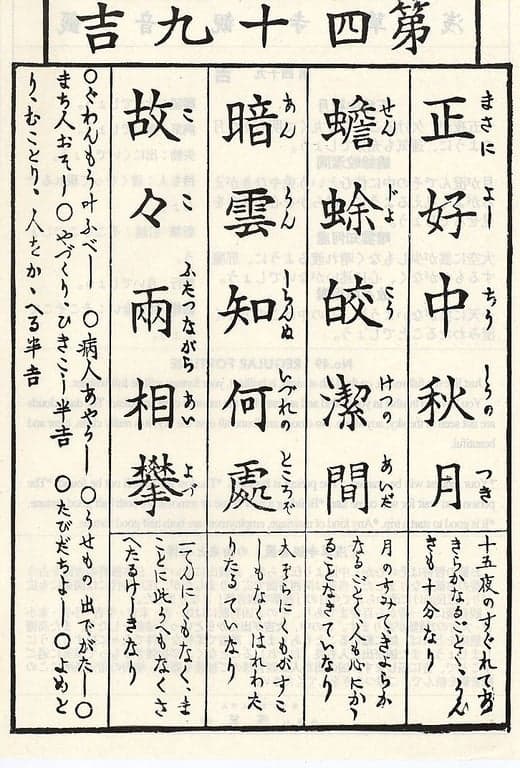 第四十九吉
正好中秋月
まさに よし ちう しうの つき
十五夜のすぐれてあ
きらかなるごとく、うん
きも十分なり
蟾蜍皎潔間
せん よ こう けつの あいだ
月のすみてきよらか
なるごとく、人も心にかゝ
ることなきていなり
暗雲知何處
あん うん しらんぬ いづれの ところぞ
大ぞらにくもがすこ
しもなくはれわた
りたるていなり
故々兩相攀
こ こ ふたつながら あい よづ
一てんにくもなく、ま
ことに此うへもなくさ
へたるけしきなり
○ぐわんもう叶ふべし ○病人あやうし ○うせもの出でがたし ○
まち人おそし ○やづくり、ひきこし半吉 ○たびだちよし ○よめと
り、むことり、人をかゝへる半吉